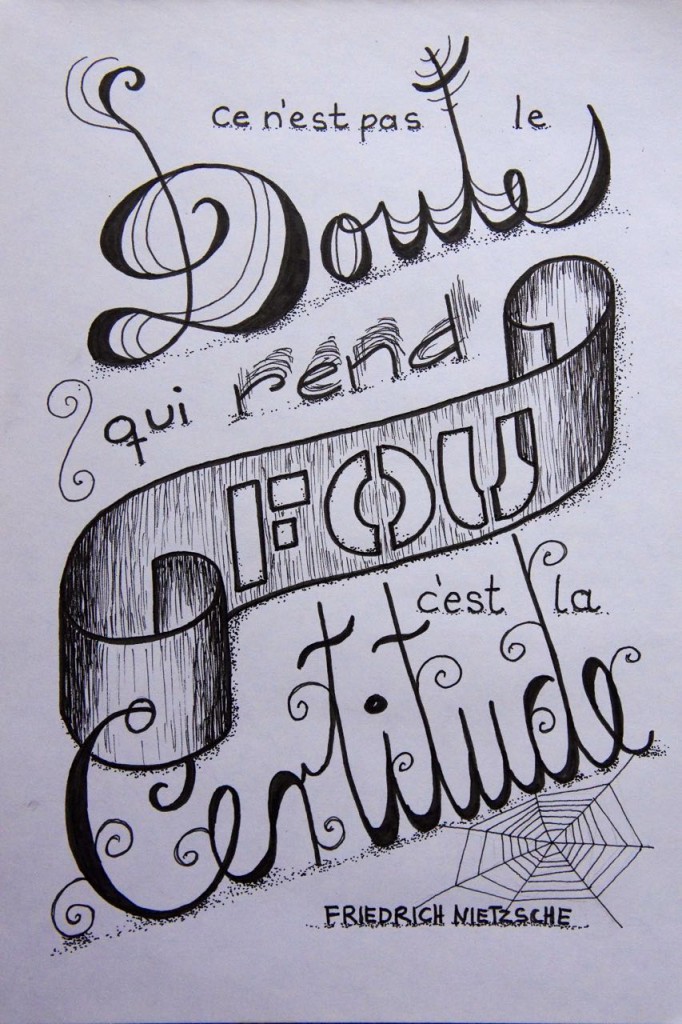 ce n'est pas le
Doute
qui rend
FOU
c'est la
Certitude
FRIEDRICH NIETZSCHE